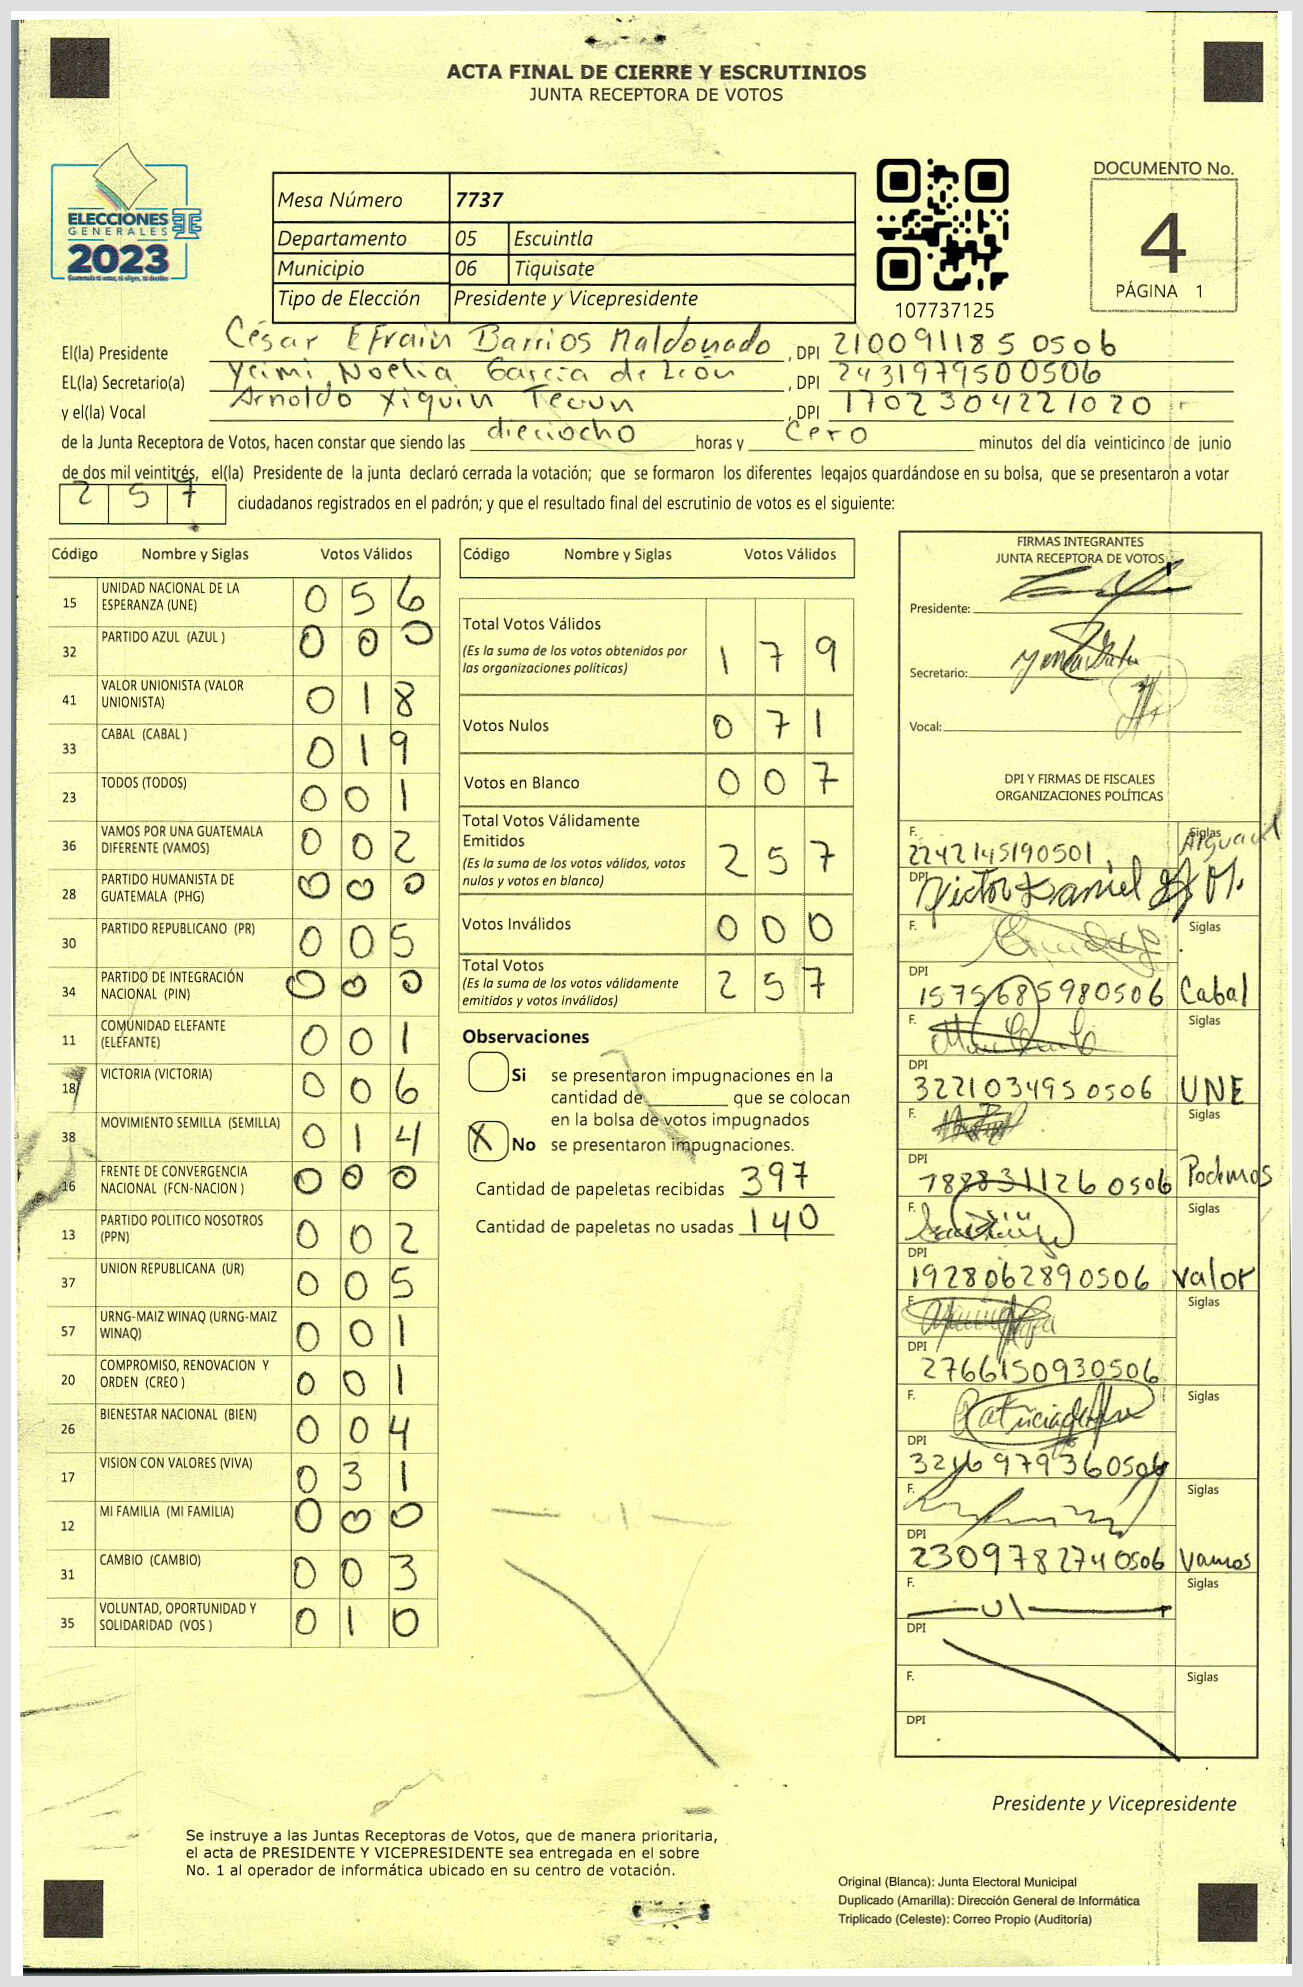 ACTA FINAL DE CIERRE Y ESCRUTINIOS
JUNTA RECEPTORA DE VOTOS
ELECCIONES
GENERALES
2023
Mesa Número 7737
Departamento 05 Escuintla
Municipio 06 Tiquisate
Tipo de Elección Presidente y Vicepresidente
107737125
DOCUMENTO No.
4
PÁGINA 1
El(la) Presidente César Efrain Barrios Maldonado , DPI 2100911850506
EL(la) Secretario(a) Yeimi Noelia Garcia de León , DPI 2431979500506
y el(la) Vocal Arnoldo Xiquin Tecun , DPI 1702304221020
de la Junta Receptora de Votos, hacen constar que siendo las dieciocho horas y Cero minutos del día veinticinco de junio
de dos mil veintitrés, el(la) Presidente de la junta declaró cerrada la votación; que se formaron los diferentes legajos guardándose en su bolsa, que se presentaron a votar
257 ciudadanos registrados en el padrón; y que el resultado final del escrutinio de votos es el siguiente:
Código Nombre y Siglas Votos Válidos
15 UNIDAD NACIONAL DE LA ESPERANZA (UNE) 056
32 PARTIDO AZUL (AZUL ) 000
41 VALOR UNIONISTA (VALOR UNIONISTA) 018
33 CABAL (CABAL ) 019
23 TODOS (TODOS) 001
36 VAMOS POR UNA GUATEMALA DIFERENTE (VAMOS) 002
28 PARTIDO HUMANISTA DE GUATEMALA (PHG) 000
30 PARTIDO REPUBLICANO (PR) 005
34 PARTIDO DE INTEGRACIÓN NACIONAL (PIN) 000
11 COMUNIDAD ELEFANTE (ELEFANTE) 001
18 VICTORIA (VICTORIA) 006
38 MOVIMIENTO SEMILLA (SEMILLA) 014
16 FRENTE DE CONVERGENCIA NACIONAL (FCN-NACION ) 000
13 PARTIDO POLITICO NOSOTROS (PPN) 002
37 UNION REPUBLICANA (UR) 005
57 URNG-MAIZ WINAQ (URNG-MAIZ WINAQ) 001
20 COMPROMISO, RENOVACION Y ORDEN (CREO ) 001
26 BIENESTAR NACIONAL (BIEN) 004
17 VISION CON VALORES (VIVA) 031
12 MI FAMILIA (MI FAMILIA) 000
31 CAMBIO (CAMBIO) 003
35 VOLUNTAD, OPORTUNIDAD Y SOLIDARIDAD (VOS ) 010
Código Nombre y Siglas Votos Válidos
Total Votos Válidos
(Es la suma de los votos obtenidos por las organizaciones políticas) 179
Votos Nulos 071
Votos en Blanco 007
Total Votos Válidamente Emitidos
(Es la suma de los votos válidos, votos nulos y votos en blanco) 257
Votos Inválidos 000
Total Votos
(Es la suma de los votos válidamente emitidos y votos inválidos) 257
Observaciones
Si se presentaron impugnaciones en la
cantidad de que se colocan
en la bolsa de votos impugnados
X No se presentaron impugnaciones.
Cantidad de papeletas recibidas 397
Cantidad de papeletas no usadas 140
FIRMAS INTEGRANTES
JUNTA RECEPTORA DE VOTOS
Presidente:
Secretario:
Vocal:
DPI Y FIRMAS DE FISCALES
ORGANIZACIONES POLÍTICAS
F. 2242145190501 Siglas
DPI Victor Daniel
F. Siglas
DPI 1575685980506 Cabal
F. Siglas
DPI 3221034950506 UNE
F. Siglas
DPI 1888311260506 Podemos
F. Siglas
DPI 1928062890506 Valor
F. Siglas
DPI 2766150930506
F. Siglas
DPI 3216979360506
F. Siglas
DPI 2309782740506 Vamos
F. Siglas
DPI
F. Siglas
DPI
Presidente y Vicepresidente
Se instruye a las Juntas Receptoras de Votos, que de manera prioritaria,
el acta de PRESIDENTE Y VICEPRESIDENTE sea entregada en el sobre
No. 1 al operador de informática ubicado en su centro de votación.
Original (Blanca): Junta Electoral Municipal
Duplicado (Amarilla): Dirección General de Informática
Triplicado (Celeste): Correo Propio (Auditoría)